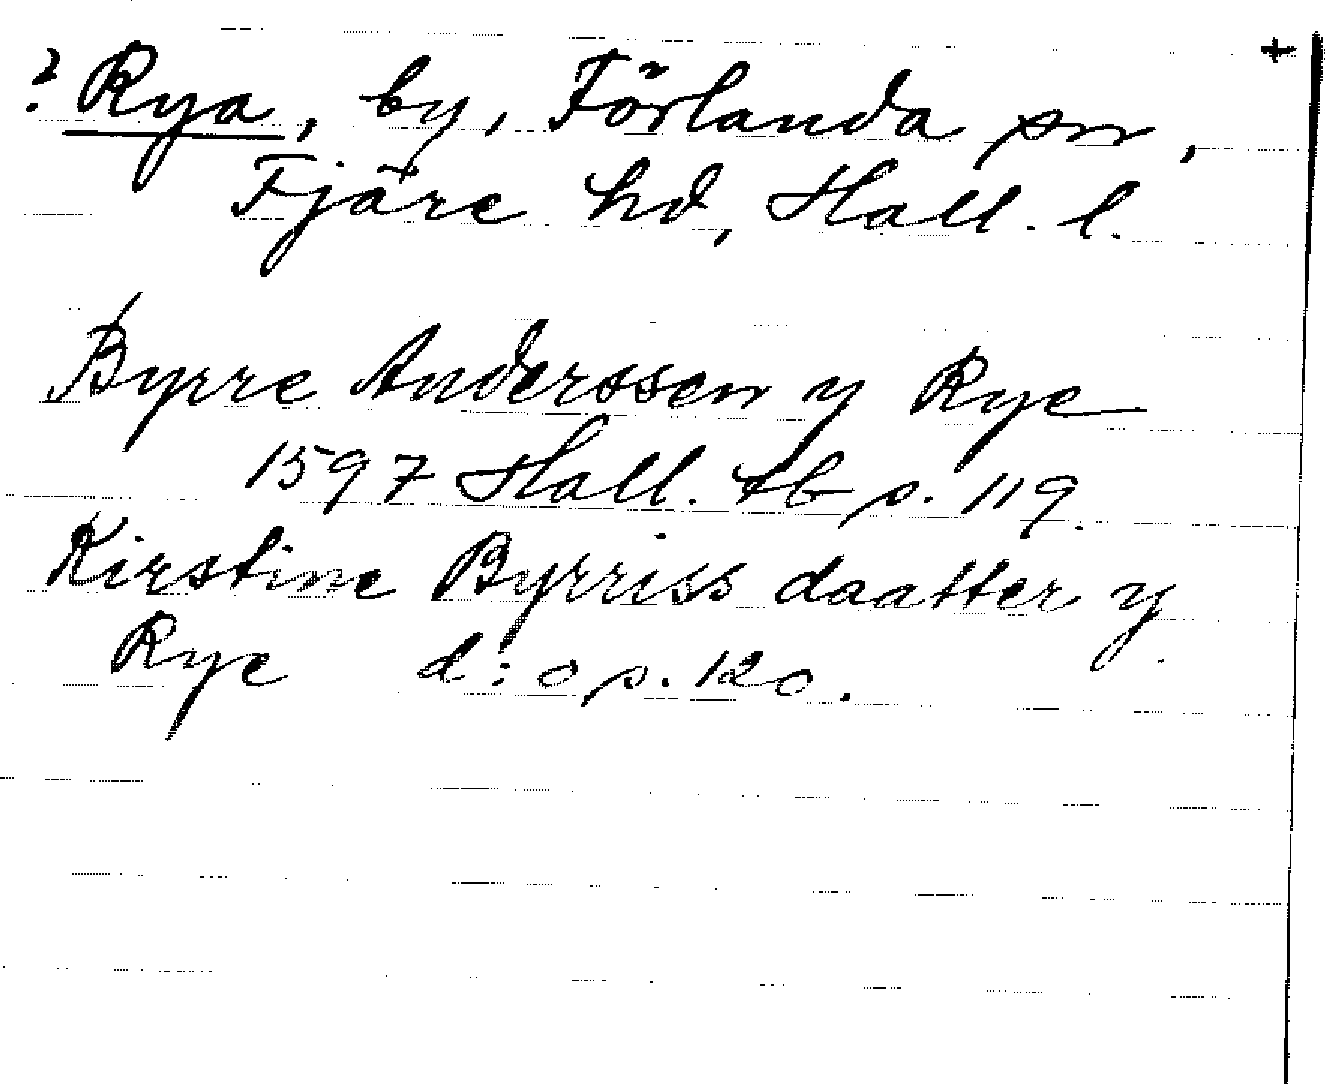 +
? Rya, by, Förlanda sn,
Fjäre hd, Hall. l.
Byrre Anderssen y Rye
1597 Hall. tb s. 119.
Kirstine Byrriss daatter y
Rye d:o s. 120.